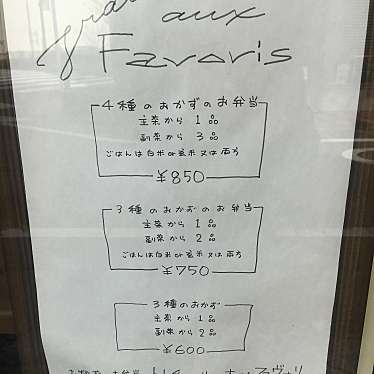 aux
Favoris
4種のおかずのお弁当
主菜から 1品
副菜から 3品
ごはんは白米or玄米又は両方
¥850
3種のおかずのお弁当
主菜から 1品
副菜から 2品
ごはんは白米or玄米又は両方
¥750
3種のおかず
主菜から 1品
副菜から 2品
¥600